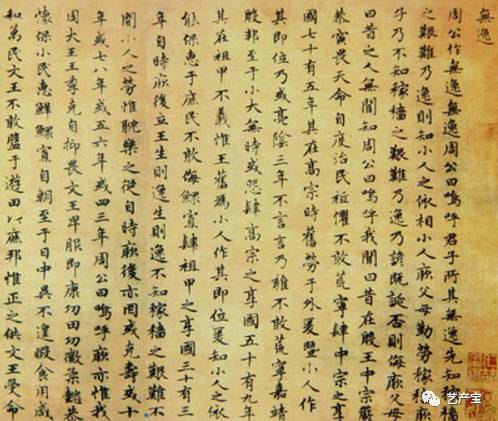 無逸
周公作無逸無逸周公曰嗚呼君子所其無逸先知稼穡
之艱難乃逸則知小人之依相小人厥父母勤勞稼穡厥
子乃不知稼穡之艱難乃逸乃諺既誕否則侮厥父母
曰昔之人無聞知周公曰嗚呼我聞曰昔在殷王中宗嚴
恭寅畏天命自度治民祗懼不敢荒寧肆中宗之享
國七十有五年其在高宗時舊勞于外爰曁小人作
其即位乃或亮陰三年不言言乃雍不敢荒寧嘉靖
殷邦至于小大無時或怨肆高宗之享國五十有九年
其在祖甲不義惟王舊爲小人作其即位爰知小人之依
能保惠于庶民不敢侮鰥寡肆祖甲之享國三十有三
年自時厥後立王生則逸不知稼穡之艱難不
聞小人之勞惟耽樂之從自時厥後亦罔或克壽或十
年或七八年或五六年或四三年周公曰嗚呼厥亦惟我
周大王王季克自抑畏文王卑服即康功田功徽柔懿恭
懷保小民惠鮮鰥寡自朝至于日中昃不遑暇食用咸
和萬民文王不敢盤于遊田以庶邦惟正之供文王受命
艺产宝